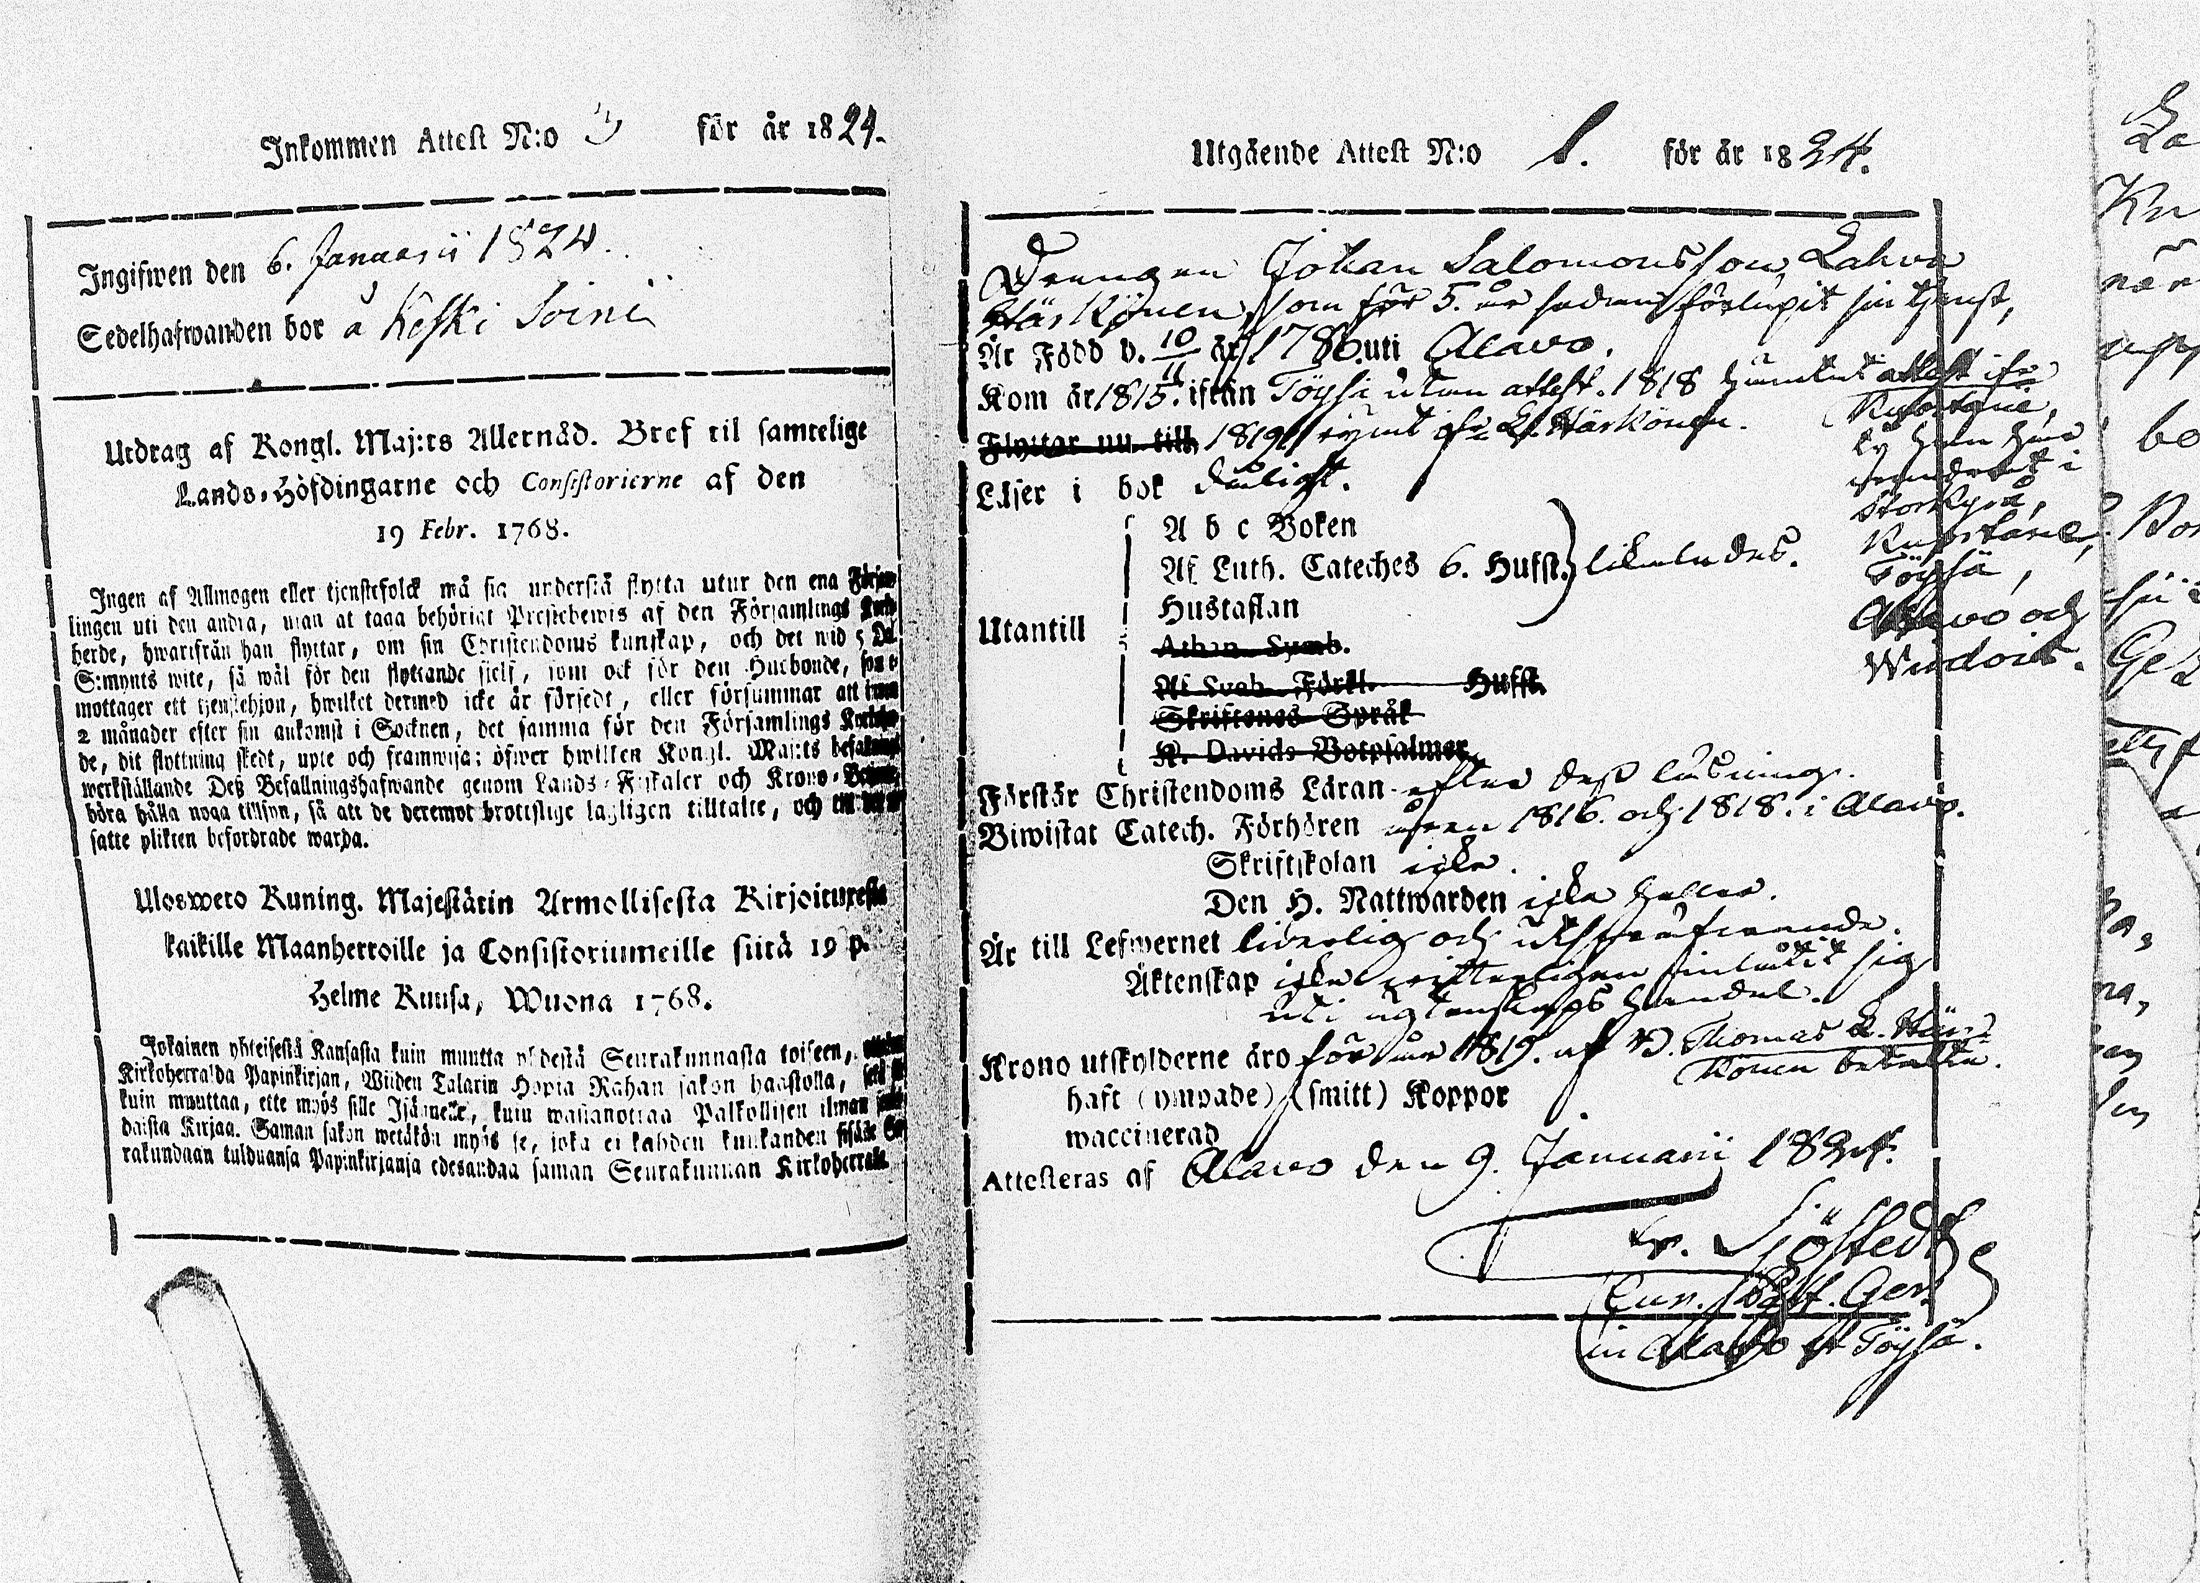 Inkommen Attest N:o 3 för år 1824.
Ingifwen den 6. Januarii 1824.
Sedelhafwanden bor å Keski Soini
Utdrag af Kongl. Maj:ts Allernåd. Bref til samtelige
Lands-Höfdingarne och Consistorierne af den
19 Febr. 1768.
Ingen af Allmogen eller tjenstefolck må sig understå flytta utur den ena Försam-
lingen uti den andra, utan at taga behörigt Prestebewis af den Församlings Kyrko-
herde, hwarifrån han flyttar, om sin Christendoms kunskap, och det wid 5 Dal.
S:mynts wite, så wäl för den flyttande sjelf, som ock för den Husbonde, som
mottager ett tjenstehjon, hwilket dermed icke är försedt, eller försummar att innom
2 månader efter sin ankomst i Socknen, det samma för den Församlings Kyrkoher-
de, dit flyttning skedt, upte och framwisa; öfwer hwilken Kongl. Maj:ts befallnings
werkställande Deß Befallningshafwande genom Lands-Fiskaler och Krono-Betjente
böra hålla noga tillsyn, så att de deremot brottslige lagligen tilltalte, och till
satte plikten befordrade warda.
Ulosweto Kuning. Majestätin Armollisesta Kirjoituxesta
kaikille Maanherroille ja Consistoriumeille siitä 19 p.
Helme Kuusa, Wuona 1768.
Jokainen yhteisestä Kansasta kuin muutta yhdestä Seurakunnasta toiseen,
Kirkoherralda Papinkirjan, Wiiden Talarin Hopia Rahan sakon haastolla,
kuin muuttaa, ette myös sille Isännelle, kuin wastanottaa Palkollisen ilman
daista Kirjaa. Saman sakon wetäkön myös se, joka ei kahden kuukauden sisälle Seu-
rakundaan tulduansa Papinkirjansa edesandaa saman Seurakunnan Kirkoherralle
Utgående Attest N:o 1. för år 1824.
Drengen Johan Salomonsson Lahva
Härkönen, som för 5. år sedan förlupit sin tjenst,
Är Född d. 10/11 år 1786. uti Alavo.
Kom år 1815. ifrån Töysä utan attest. 1818 hämtat attest ifr.
Kuortane,
Flyttar nu till 1819 rymt ifr. L. Härkönen.
ty han har
vandrat i
Storkyrå,
Kuortane,
Töysä,
Alavo och
Wirdois.
Läser i bok dåligt.
Utantill
A b c Boken
Af Luth. Cateches 6. Hufst. likaledes.
Hustaflan
Athan. Symb.
Af Sveb. Förkl. Hufst.
Skriftenes Språk
K. Davids Botpsalmer
Förstår Christendoms Läran efter deß läsning.
Biwistat Catech. Förhören åren 1816. och 1818. i Alavo.
Skriftskolan icke.
Den H. Nattwarden icke heller.
Är till Lefwernet liderlig och
Äktenskap icke inlåtit sig
uti ägtenskaps handel.
Krono utskylderne äro för år 1819. af Thomas L. Här-
könen betalta.
haft (ympade) (smitt) Koppor
waccinerad
Attesteras af Alavo den 9. Januarii 1824.
Sjöstedt
in Alavo et Töysä.